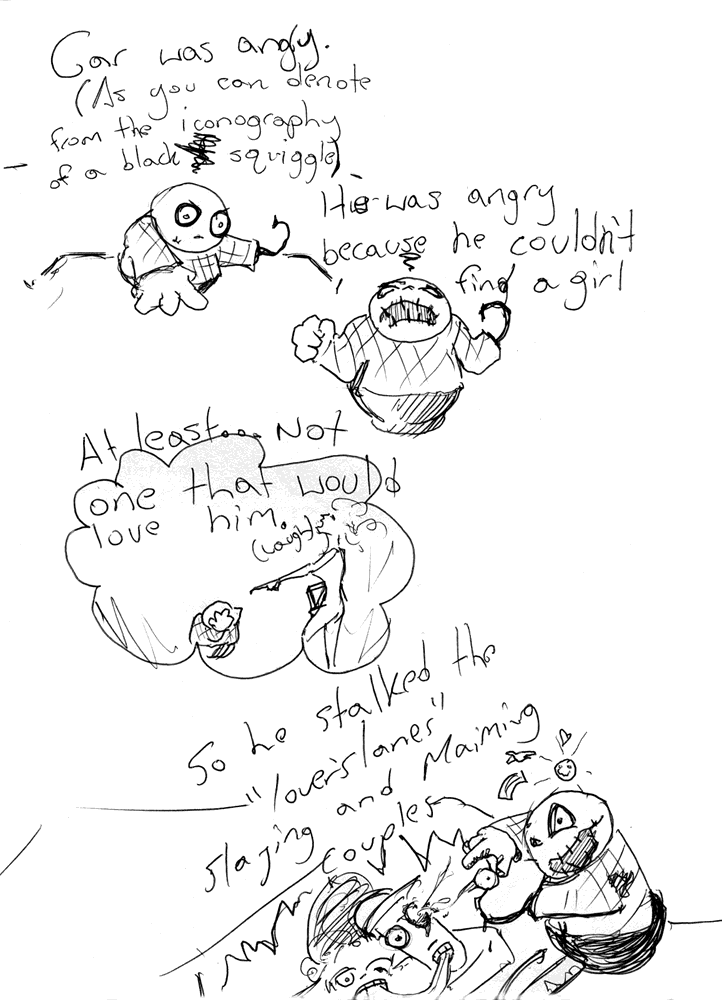 Gar was angry.
(As you can denote
from the iconography
of a black squiggle)
He was angry
because he couldn't
find a girl
At least... Not
one that would
love him.
(Laugh)
So he stalked the
"lover's lanes"
slaying and Maiming
couples